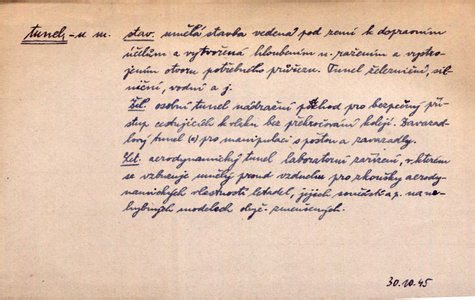 tunel, -u m. stav. umělá stavba vedená pod zemí k dopravním
účelům a vytvořená hloubením n. ražením a vyztu-
žením otvoru potřebného průřezu. Tunel železniční, sil-
niční, vodní a j.
Žel. osobní tunel nádražní podchod pro bezpečný pří-
stup cestujících k vlaku bez překračování kolejí. Zavazad-
lový tunel pro manipulaci s poštou a zavazadly.
Let. aerodynamický tunel laboratorní zařízení, v kterém
se vzbuzuje umělý proud vzduchu pro zkoušky aerody-
namických vlastností letadel, jejich součástí a p. na ne-
hybných modelech obyč. zmenšených.
30.10.45